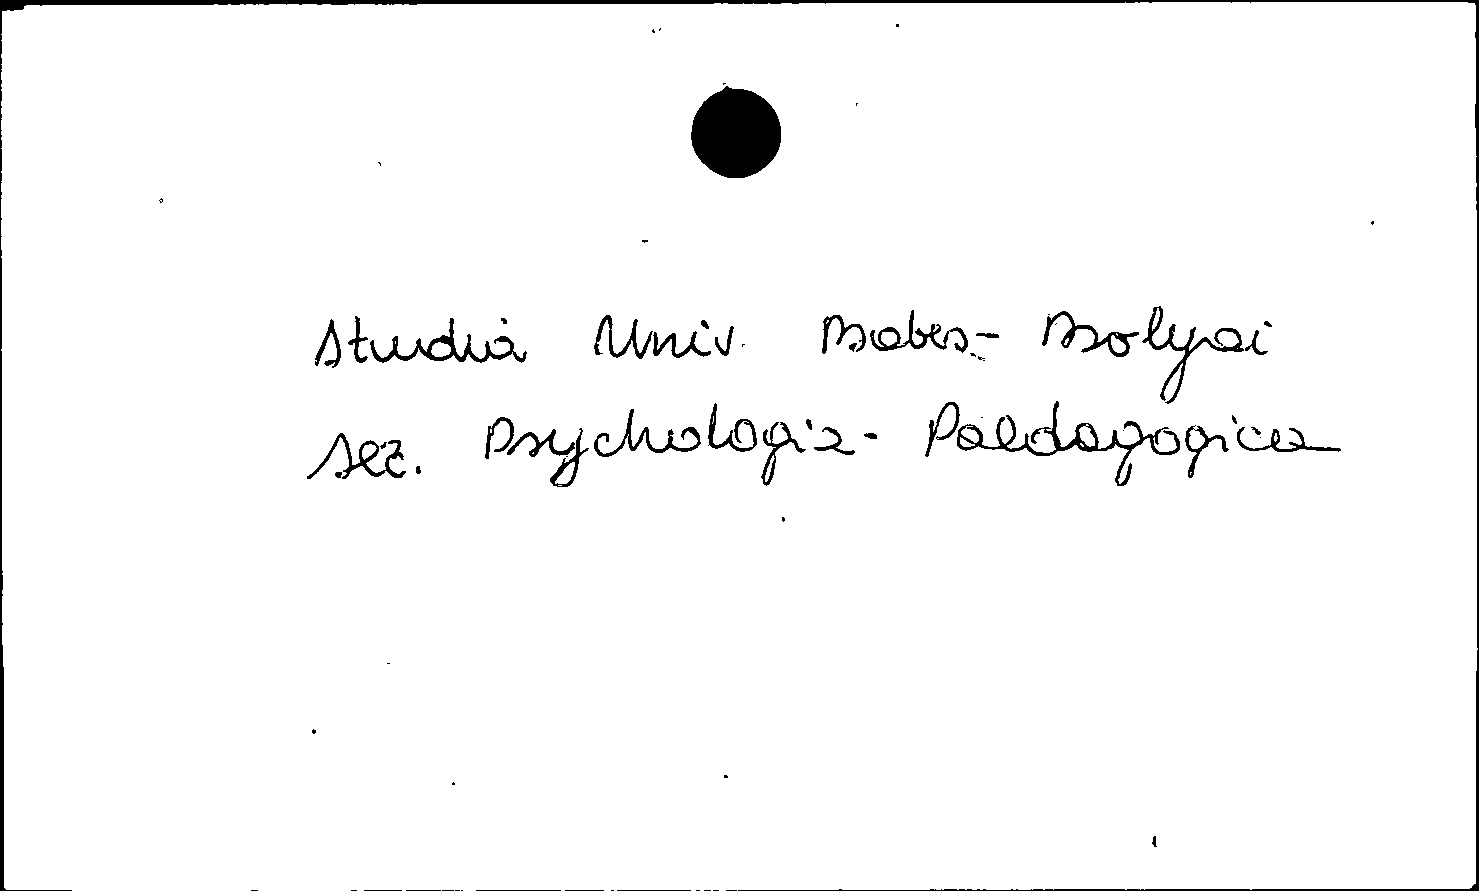 Studia Univ. Babes-Bolyai
sec. Psychologia-Paedagogica